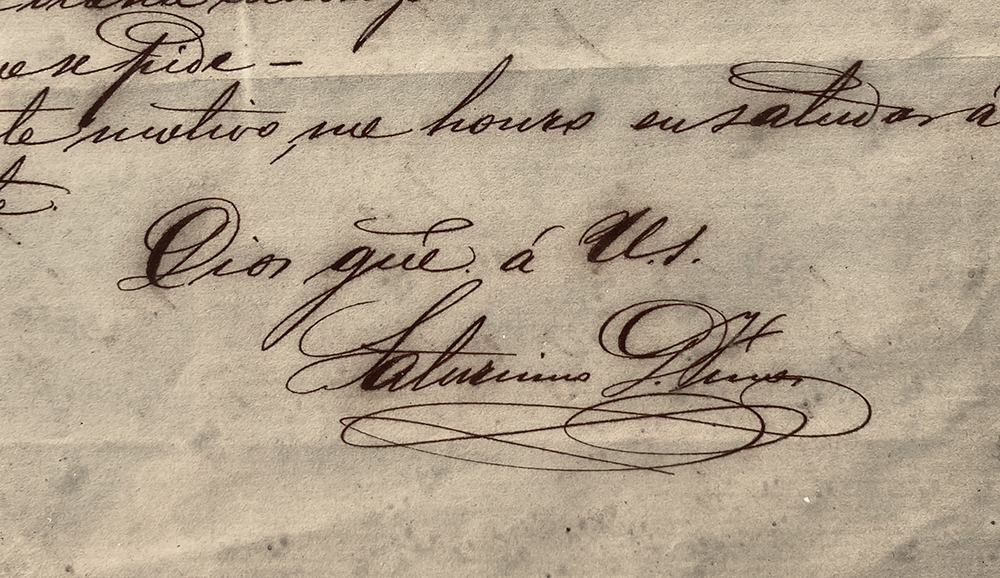 se pide –
te motivo, me honro en saludar á
te.
Dios gúe. á U.S.
Saturnino D.